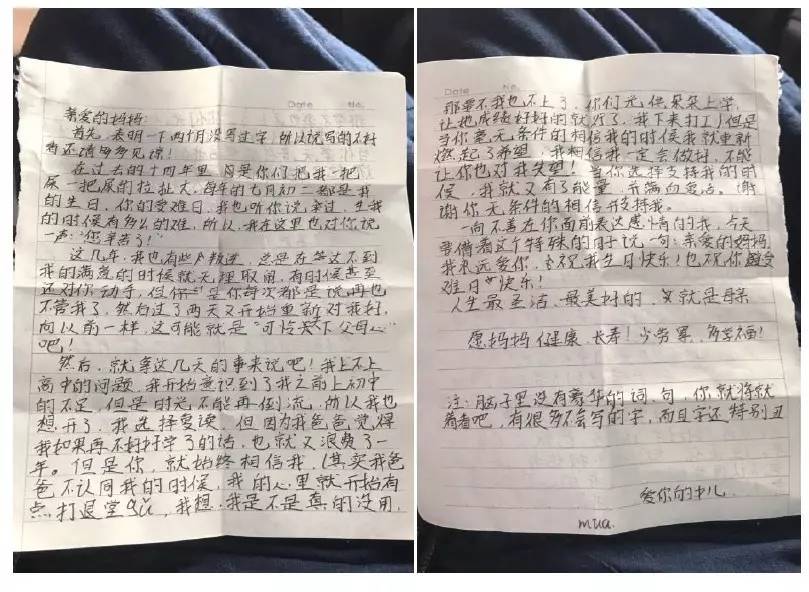 Date No.
亲爱的妈妈:
首先,表明一下两个月没写过字,所以说写的不好
看还请多多见谅!
在过去的十四年里,问是你们把我一把
屎一把尿的拉扯大,每年的七月初二都是我
的生日,你的受难日,我也听你说
,生我
的时候有多么的难,所以,我在这里也对你说
一声:"您辛苦了!"
这几年,我也有些叛逆,总是在
达不到
我的满意的时候就无理取闹,有时候甚至
还对你动手,但你
是你每次都是说再也
不管我了,然后过了两天又开始重新对我好,
向以前一样,这可能就是"可怜天下父母心"
吧!
然后,就拿这几天的事来说吧!我上不上
高中的问题,我开始意识到了我之前上初中
的不足,但是时光不能再倒流,所以我也
想开了,我选择复读,但因为我爸爸觉得
我如果再不好好学了的话,也就又浪费了一
年。但是你,就始终相信我,(其实我爸
爸不认同我的时候,我的心里就开始有
点打退堂鼓,我想,我是不是真的没用,
Date No.
那要不我也不上了,你们光供
上学,
让他成绩好好的就好了,我下来打工)但是
当你无条件的相信我的时候我就重新
燃起了希望,我相信我一定会做好,不能
让你也对我失望!当你选择支持我的时
候,我就又有了能量,并满血复活。谢
谢你无条件的相信并支持我。
一向不善在你面前表达感情的我,今天
要借着这个特殊的日子说一句:亲爱的妈妈
我永远爱你,也祝我生日快乐!也祝你"受
难日"快乐!
人生最圣洁、最美好的,
就是母亲
愿妈妈健康、长寿!少劳累,多享福!
注:脑子里没有豪华的词、句,你就将就
着看吧,有很多不会写的字,而且字还特别丑
爱你的
儿
mua.